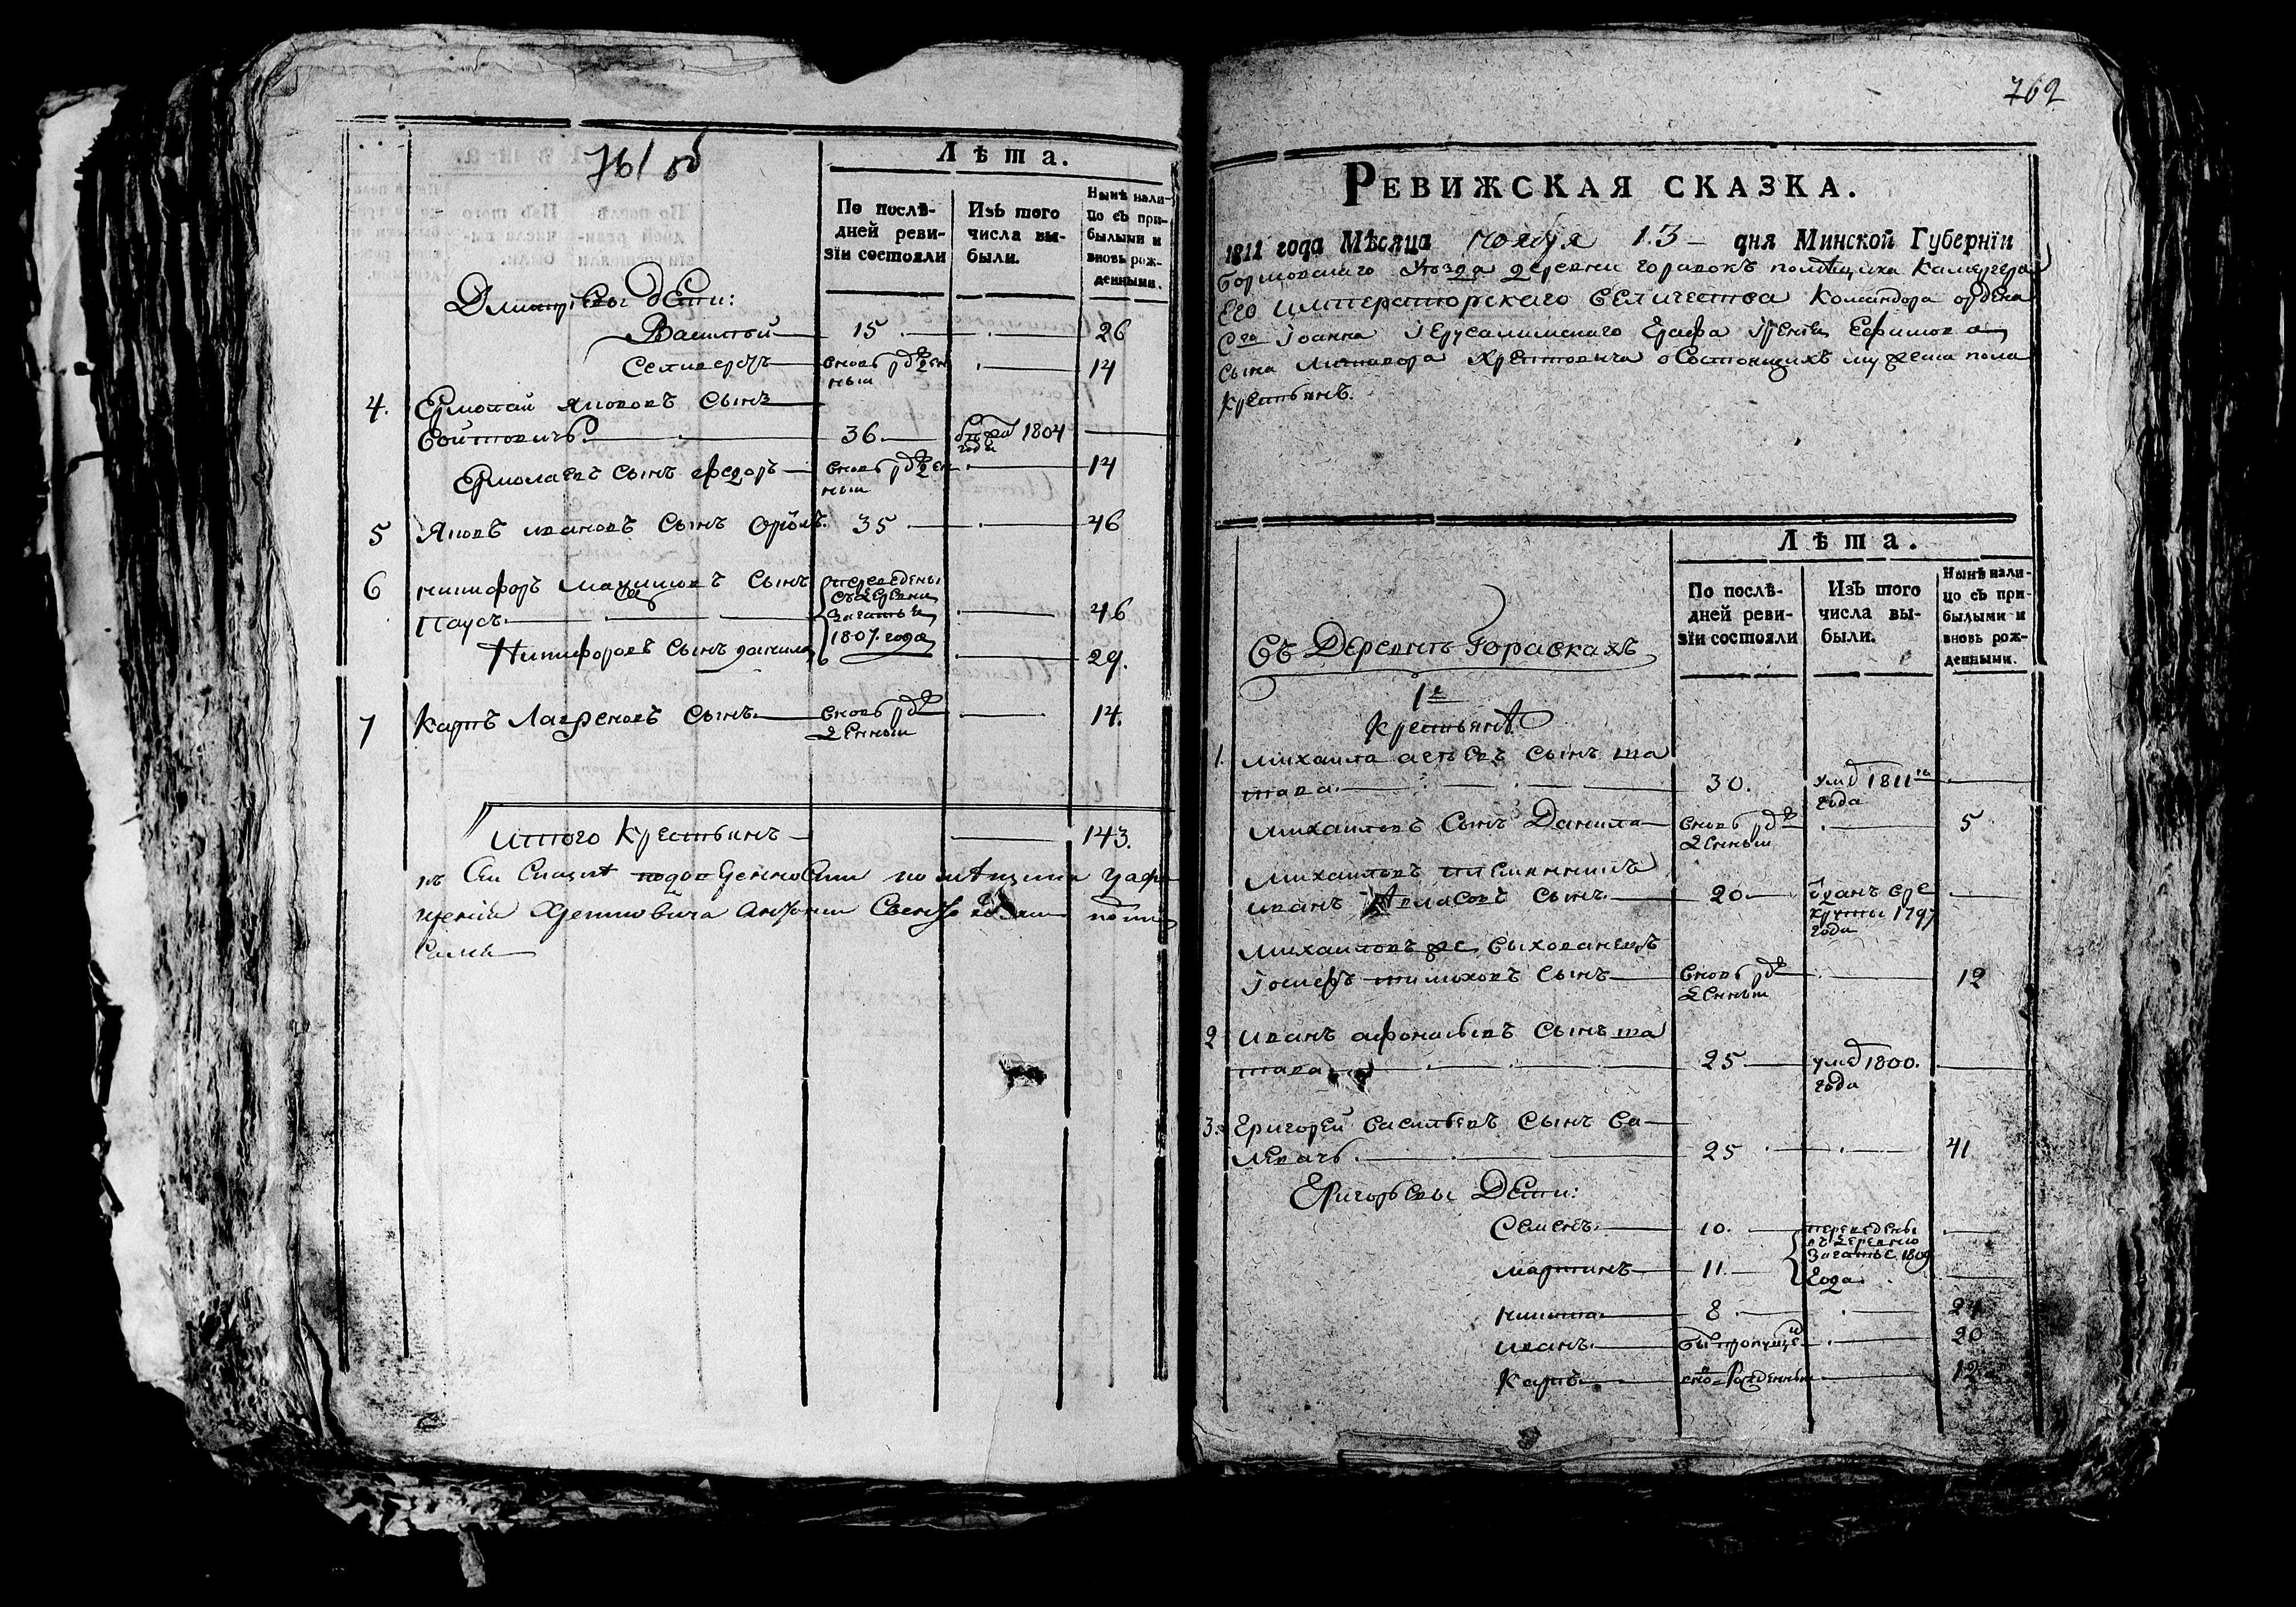 761 об
Лѣта.
По послѣдней ревизіи состояли
Изъ того числа выбыли.
Нынѣ налицо съ прибылыми и вновь рожденными.
Дмитріевы дѣти:
Василей 15 26
Селиверстъ вновь рожденный 14
4. Ермолай Якововъ сынъ
Войтовичъ 36 1804 года
Ермолаевъ сынъ Федоръ вновь рожденный 14
5 Яковъ Ивановъ сынъ 35 46
6 Никифоръ Максимовъ сынъ
Паусъ переведены съ деревни 1807 года 46
Никифоровъ сынъ Данила 29.
7 Карпъ сынъ вновь рожденный 14.
Итого крестьянъ 143.
къ сей сказкѣ по довѣренности помѣщика графа
Хрептовича
762
РЕВИЖСКАЯ СКАЗКА.
1811 года Мѣсяца ноября 13 дня Минской Губерніи
Борисовскаго уѣзда деревни Горавокъ помѣщика Камергера
Его Императорскаго Величества Командора ордена
Сго Іоанна Іерусалимскаго Графа Ефимова
сына Хрептовича о состоящихъ мужеска пола
крестьянъ.
Лѣта.
По послѣдней ревизіи состояли
Изъ того числа выбыли.
Нынѣ налицо съ прибылыми и вновь рожденными.
Въ деревнѣ Горавкахъ
1е
Крестьянѣ
1. Михайла сынъ та
тара. 30. умре 1811го года
Михайловъ сынъ Данила вновь рожденный 5
Михайловъ племянникъ
Иванъ Авласовъ сынъ 20 1797 года
Михайловъ же выхованецъ
Іосифъ Тимоховъ сынъ вновь рожденный 12
2 Иванъ Афонасьевъ сынъ та
тара 25 умре 1800. года
3. Григорей Васильевъ сынъ Ва
левачъ. 25 41
Григорьевы дѣти:
Семенъ 10. переведены въ деревню 1809 года
Мартинъ 11.
Никита 8 24
Иванъ былъ пропущенъ 20
Карпъ вновь рожденный 12